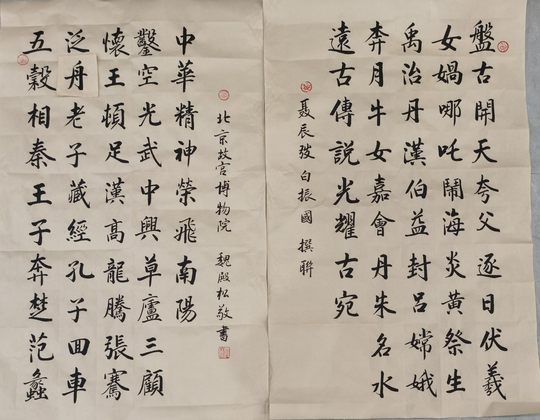 盤古開天夸父逐日伏羲
女媧哪吒鬧海炎黃祭生
禹治丹漢伯益封呂嫦娥
奔月牛女嘉會丹朱名水
遠古傳說光耀古宛
聂辰弢白振國 撰聯
五穀相秦王子奔楚范蠡
泛舟老子藏經孔子囬車
懷王頓足漢高龍騰張騫
鑿空光武中興草廬三顧
中華精神榮飛南陽
北京故宮博物院 魏殿松敬書